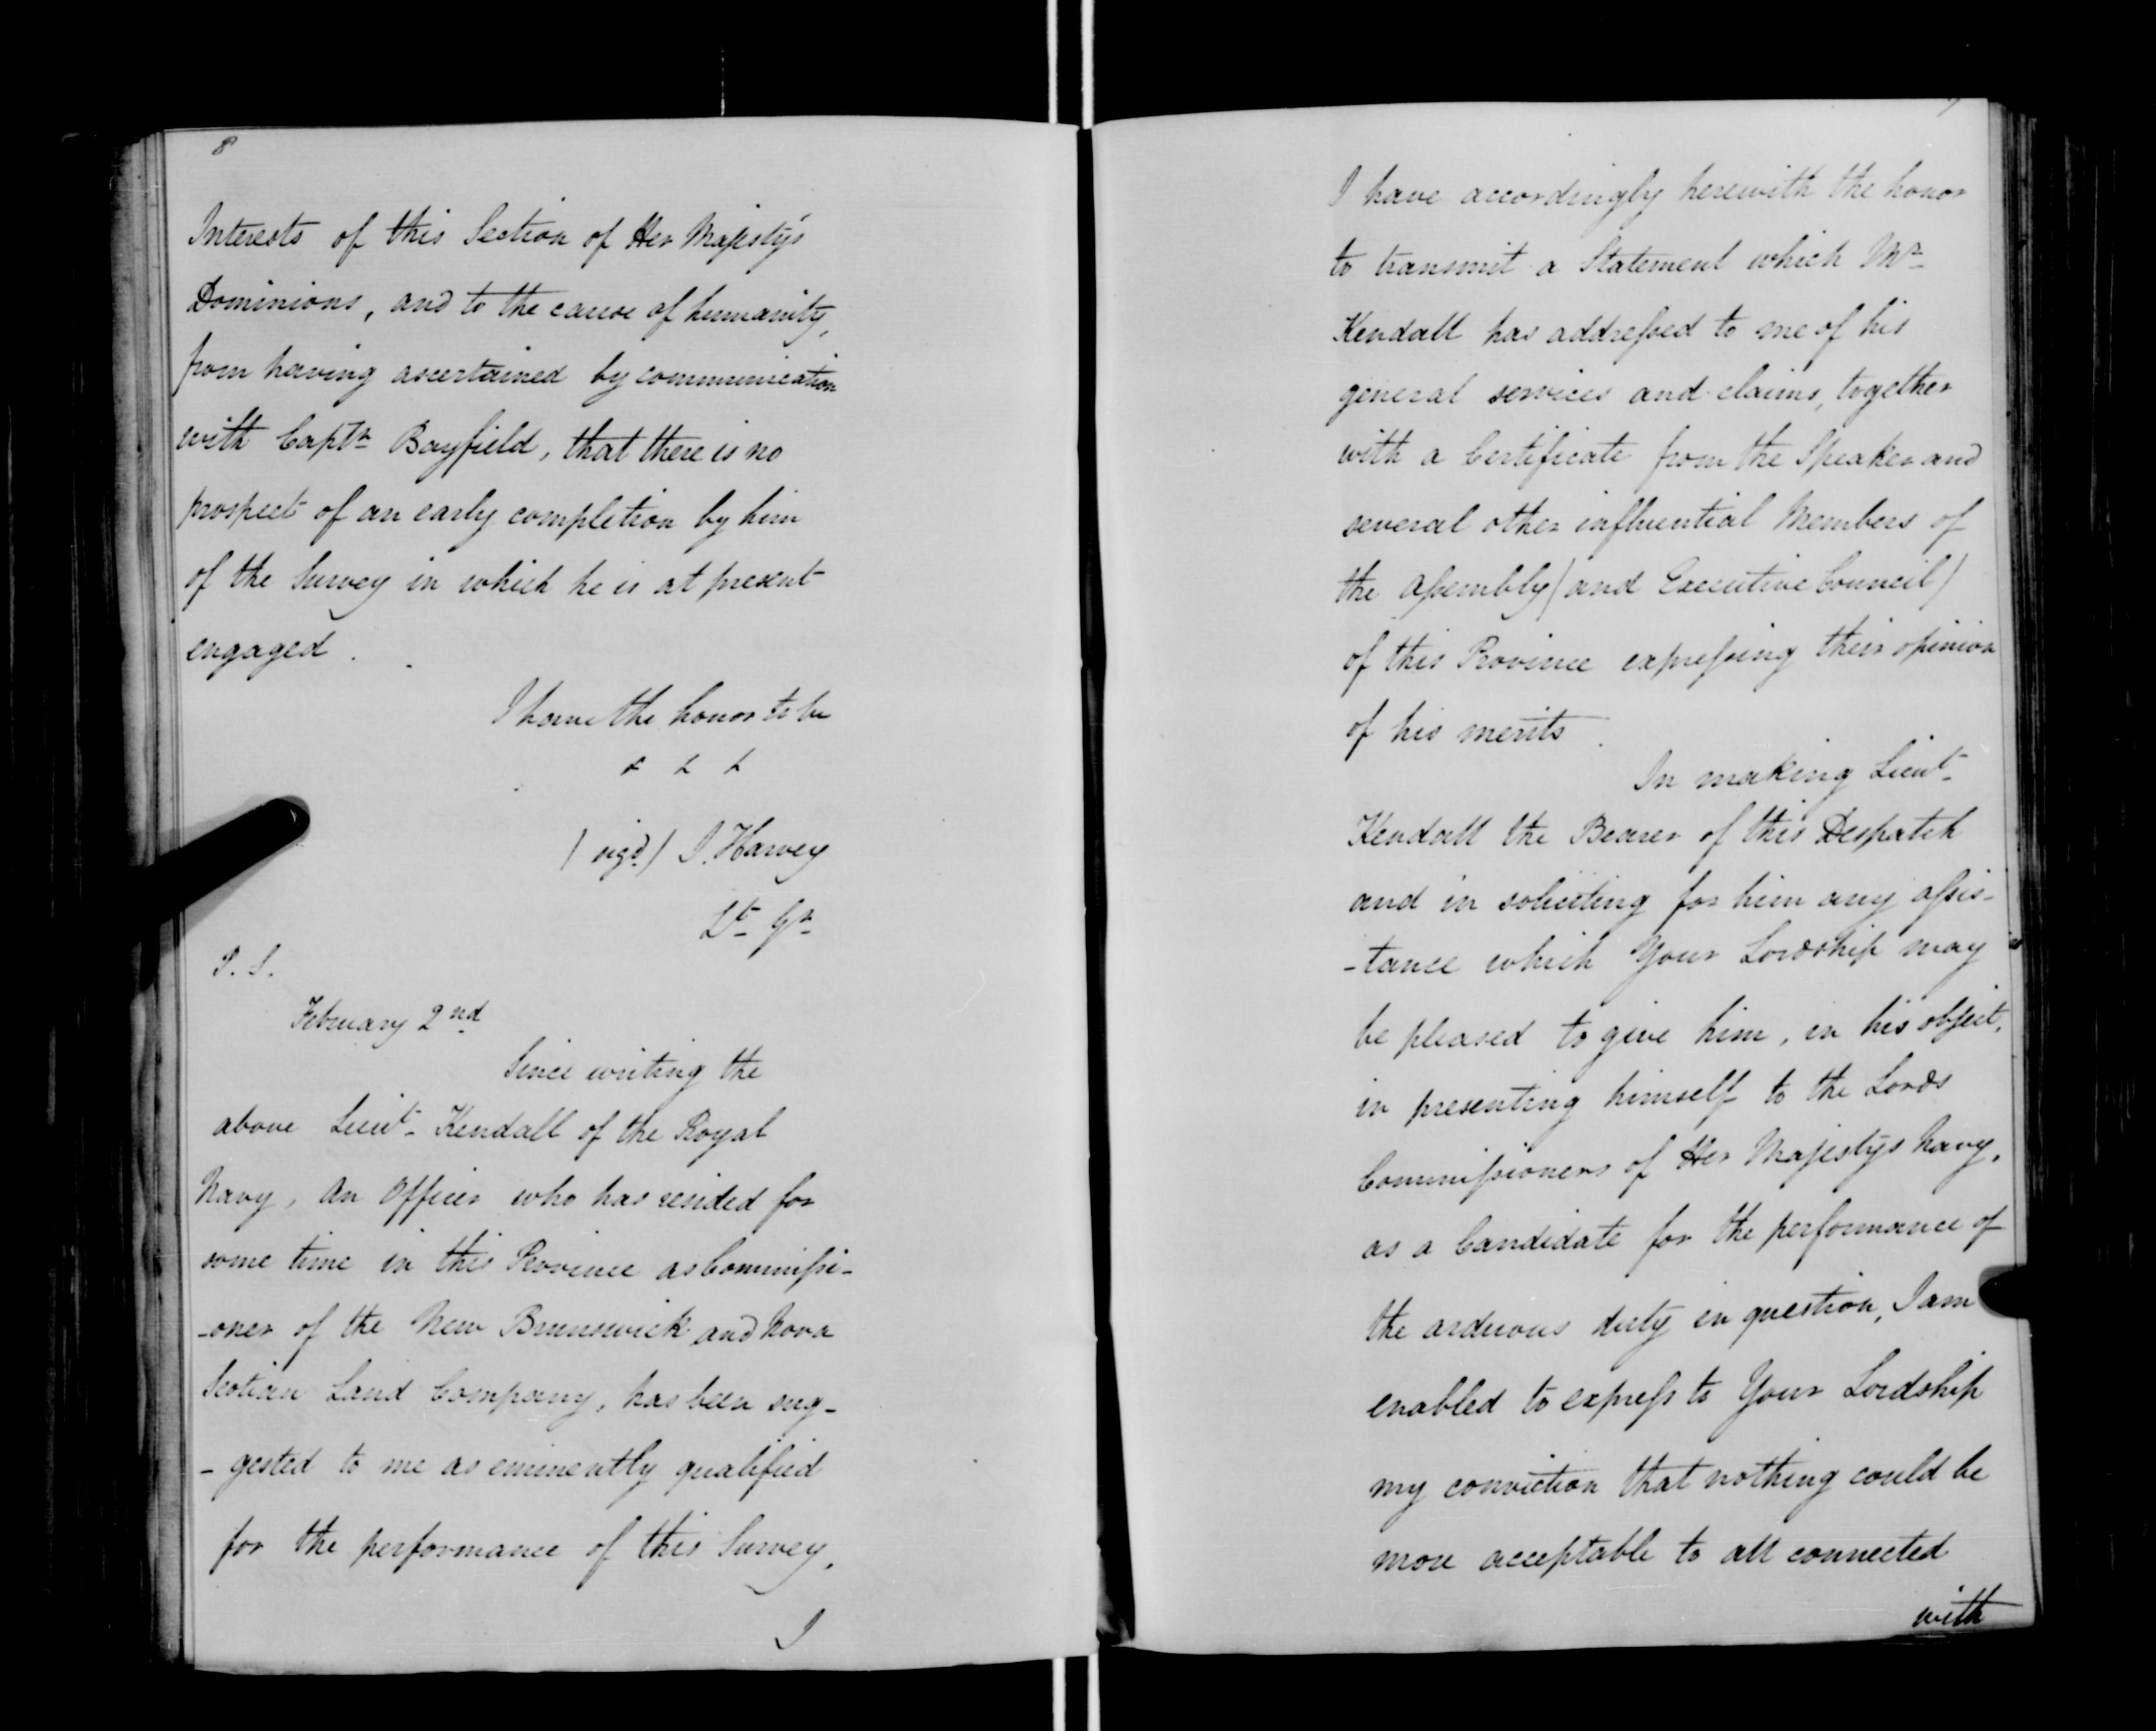 8
Interests of this Section of Her Majesty's
Dominions, and to the cause of humanity,
from having ascertained by communication
with Captn Bayfield, that there is no
prospect of an early completion by him
of the Survey in which he is at present
engaged.
I have the honor to be
& & &
(sigd.) J. Harvey
Lt Gr
P. S.
February 2nd
Since writing the
above Lieut- Kendall of the Royal
Navy, an Officer who has resided for
some time in this Province as Commissi-
-oner of the New Brunswick and Nova
Scotian Land Company, has been sug-
-gested to me as eminently qualified
for the performance of this Survey,
I
I have accordingly herewith the honor
to transmit a Statement which Mr
Kendall has addressed to me of his
general services and claims, together
with a Certificate from the Speaker and
several other influential Members of
the Assembly (and Executive Council)
of this Province expressing their opinion
of his merits.
In making Lieut-
Kendall the Bearer of this Despatch
and in soliciting for him any assis-
-tance which Your Lordship may
be pleased to give him, in his object,
in presenting himself to the Lords
Commissioners of Her Majestys Navy,
as a Candidate for the performance of
the arduous duty in question, I am
enabled to express to Your Lordship
my conviction that nothing could be
more acceptable to all connected
with